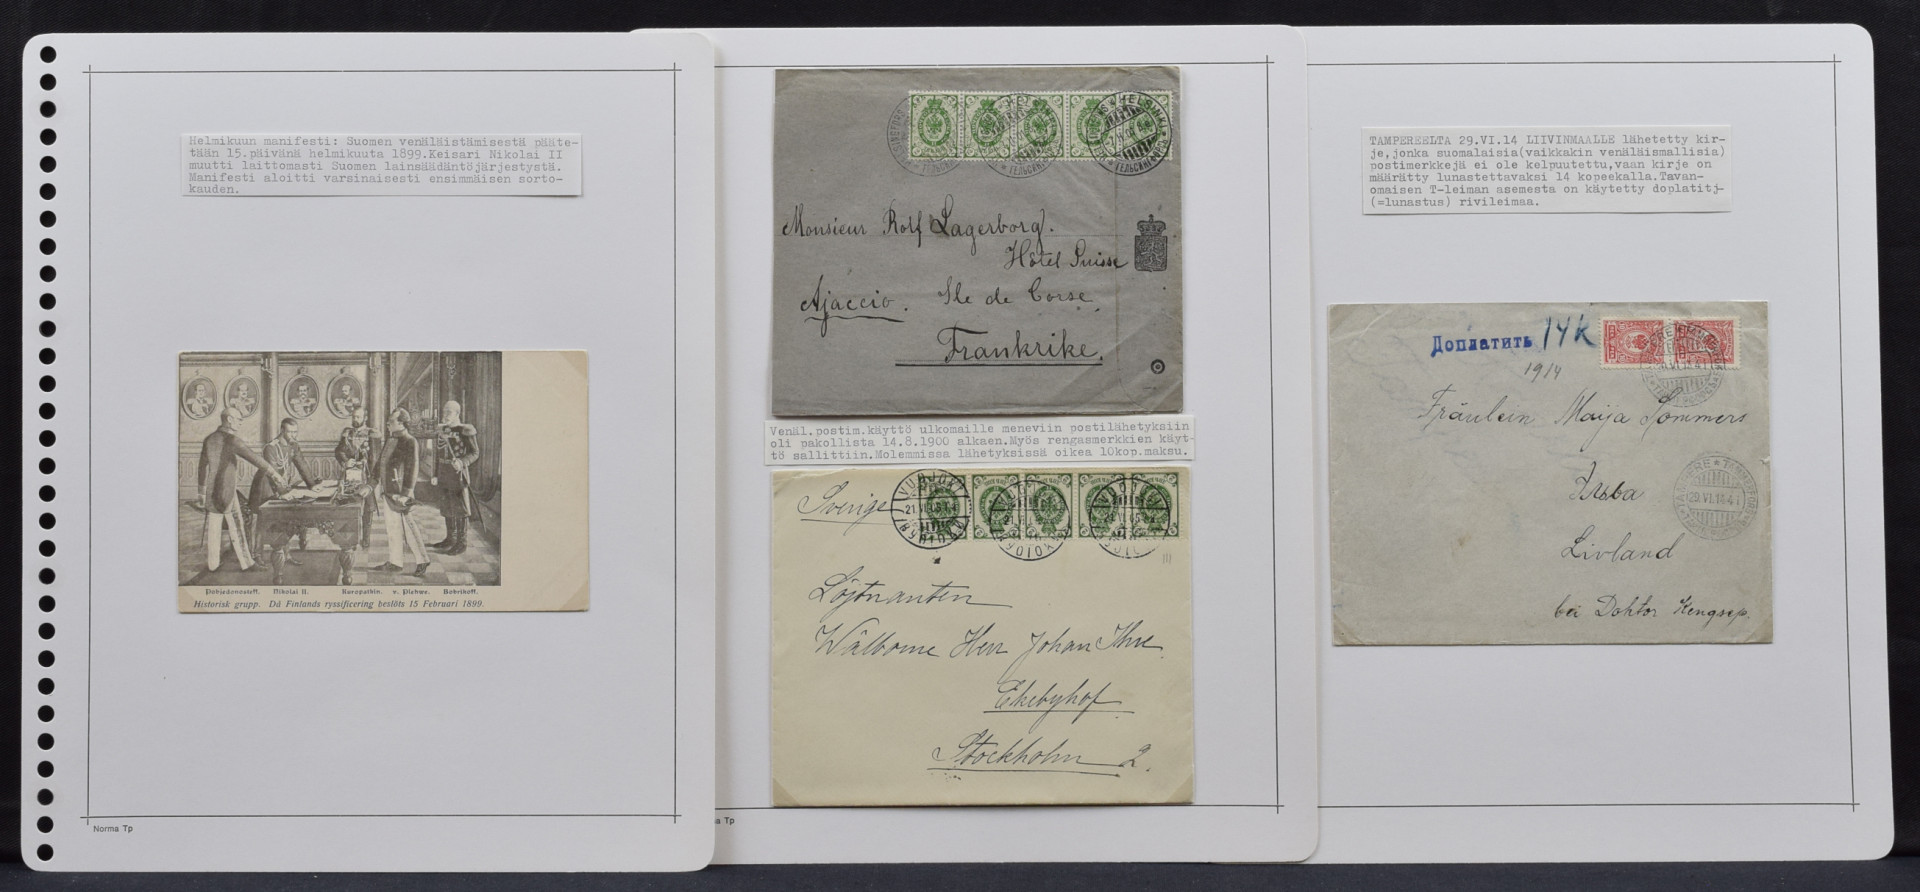 Helmikuun manifesti: Suomen venäläistämisestä pääte-
tään 15.päivänä helmikuuta 1899.Keisari Nikolai II
muutti laittomasti Suomen lainsäädäntöjärjestystä.
Manifesti aloitti varsinaisesti ensimmäisen sorto-
kauden.
Pobjedonosteff. Nikolai II. Kuropatkin. v. Plehwe. Bobrikoff.
Historisk grupp. Då Finlands ryssificering beslöts 15 Februari 1899.
Norma Tp
Monsieur Rolf Lagerborg.
Hôtel Suisse
Ajaccio. Ile de Corse.
Frankrike.
Venäl.postim.käyttö ulkomaille meneviin postilähetyksiin
oli pakollista 14.8.1900 alkaen.Myös rengasmerkkien käyt-
tö sallittiin.Molemmissa lähetyksissä oikea 10kop.maksu.
Sverige
Löjtnanten
Wälborne Herr Johan Ihre
Ekebyhof
Stockholm 2.
Tp
TAMPEREELTA 29.VI.14 LIIVINMAALLE lähetetty kir-
je,jonka suomalaisia(vaikkakin venäläismallisia)
postimerkkejä ei ole kelpuutettu,vaan kirje on
määrätty lunastettavaksi 14 kopeekalla.Tavan-
omaisen T-leiman asemesta on käytetty doplatitj
(=lunastus) rivileimaa.
Доплатить 14 k
1914
Fräulein Maija Sommers
Livland
bei Doktor
TAMPERE TAMMERFORS
29.VI.14